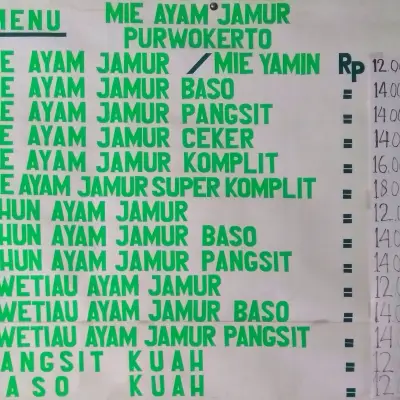 MENU
MIE AYAM JAMUR
PURWOKERTO
E AYAM JAMUR / MIE YAMIN Rp 12.0
E AYAM JAMUR BASO = 14.00
E AYAM JAMUR PANGSIT = 14.00
E AYAM JAMUR CEKER = 14.0
E AYAM JAMUR KOMPLIT = 16.00
E AYAM JAMUR SUPER KOMPLIT = 18.00
HUN AYAM JAMUR = 12.0
HUN AYAM JAMUR BASO = 14.0
HUN AYAM JAMUR PANGSIT = 14.0
WETIAU AYAM JAMUR = 12.0
WETIAU AYAM JAMUR BASO = 14.0
WETIAU AYAM JAMUR PANGSIT = 14
ANGSIT KUAH = 12
ASO KUAH = 12